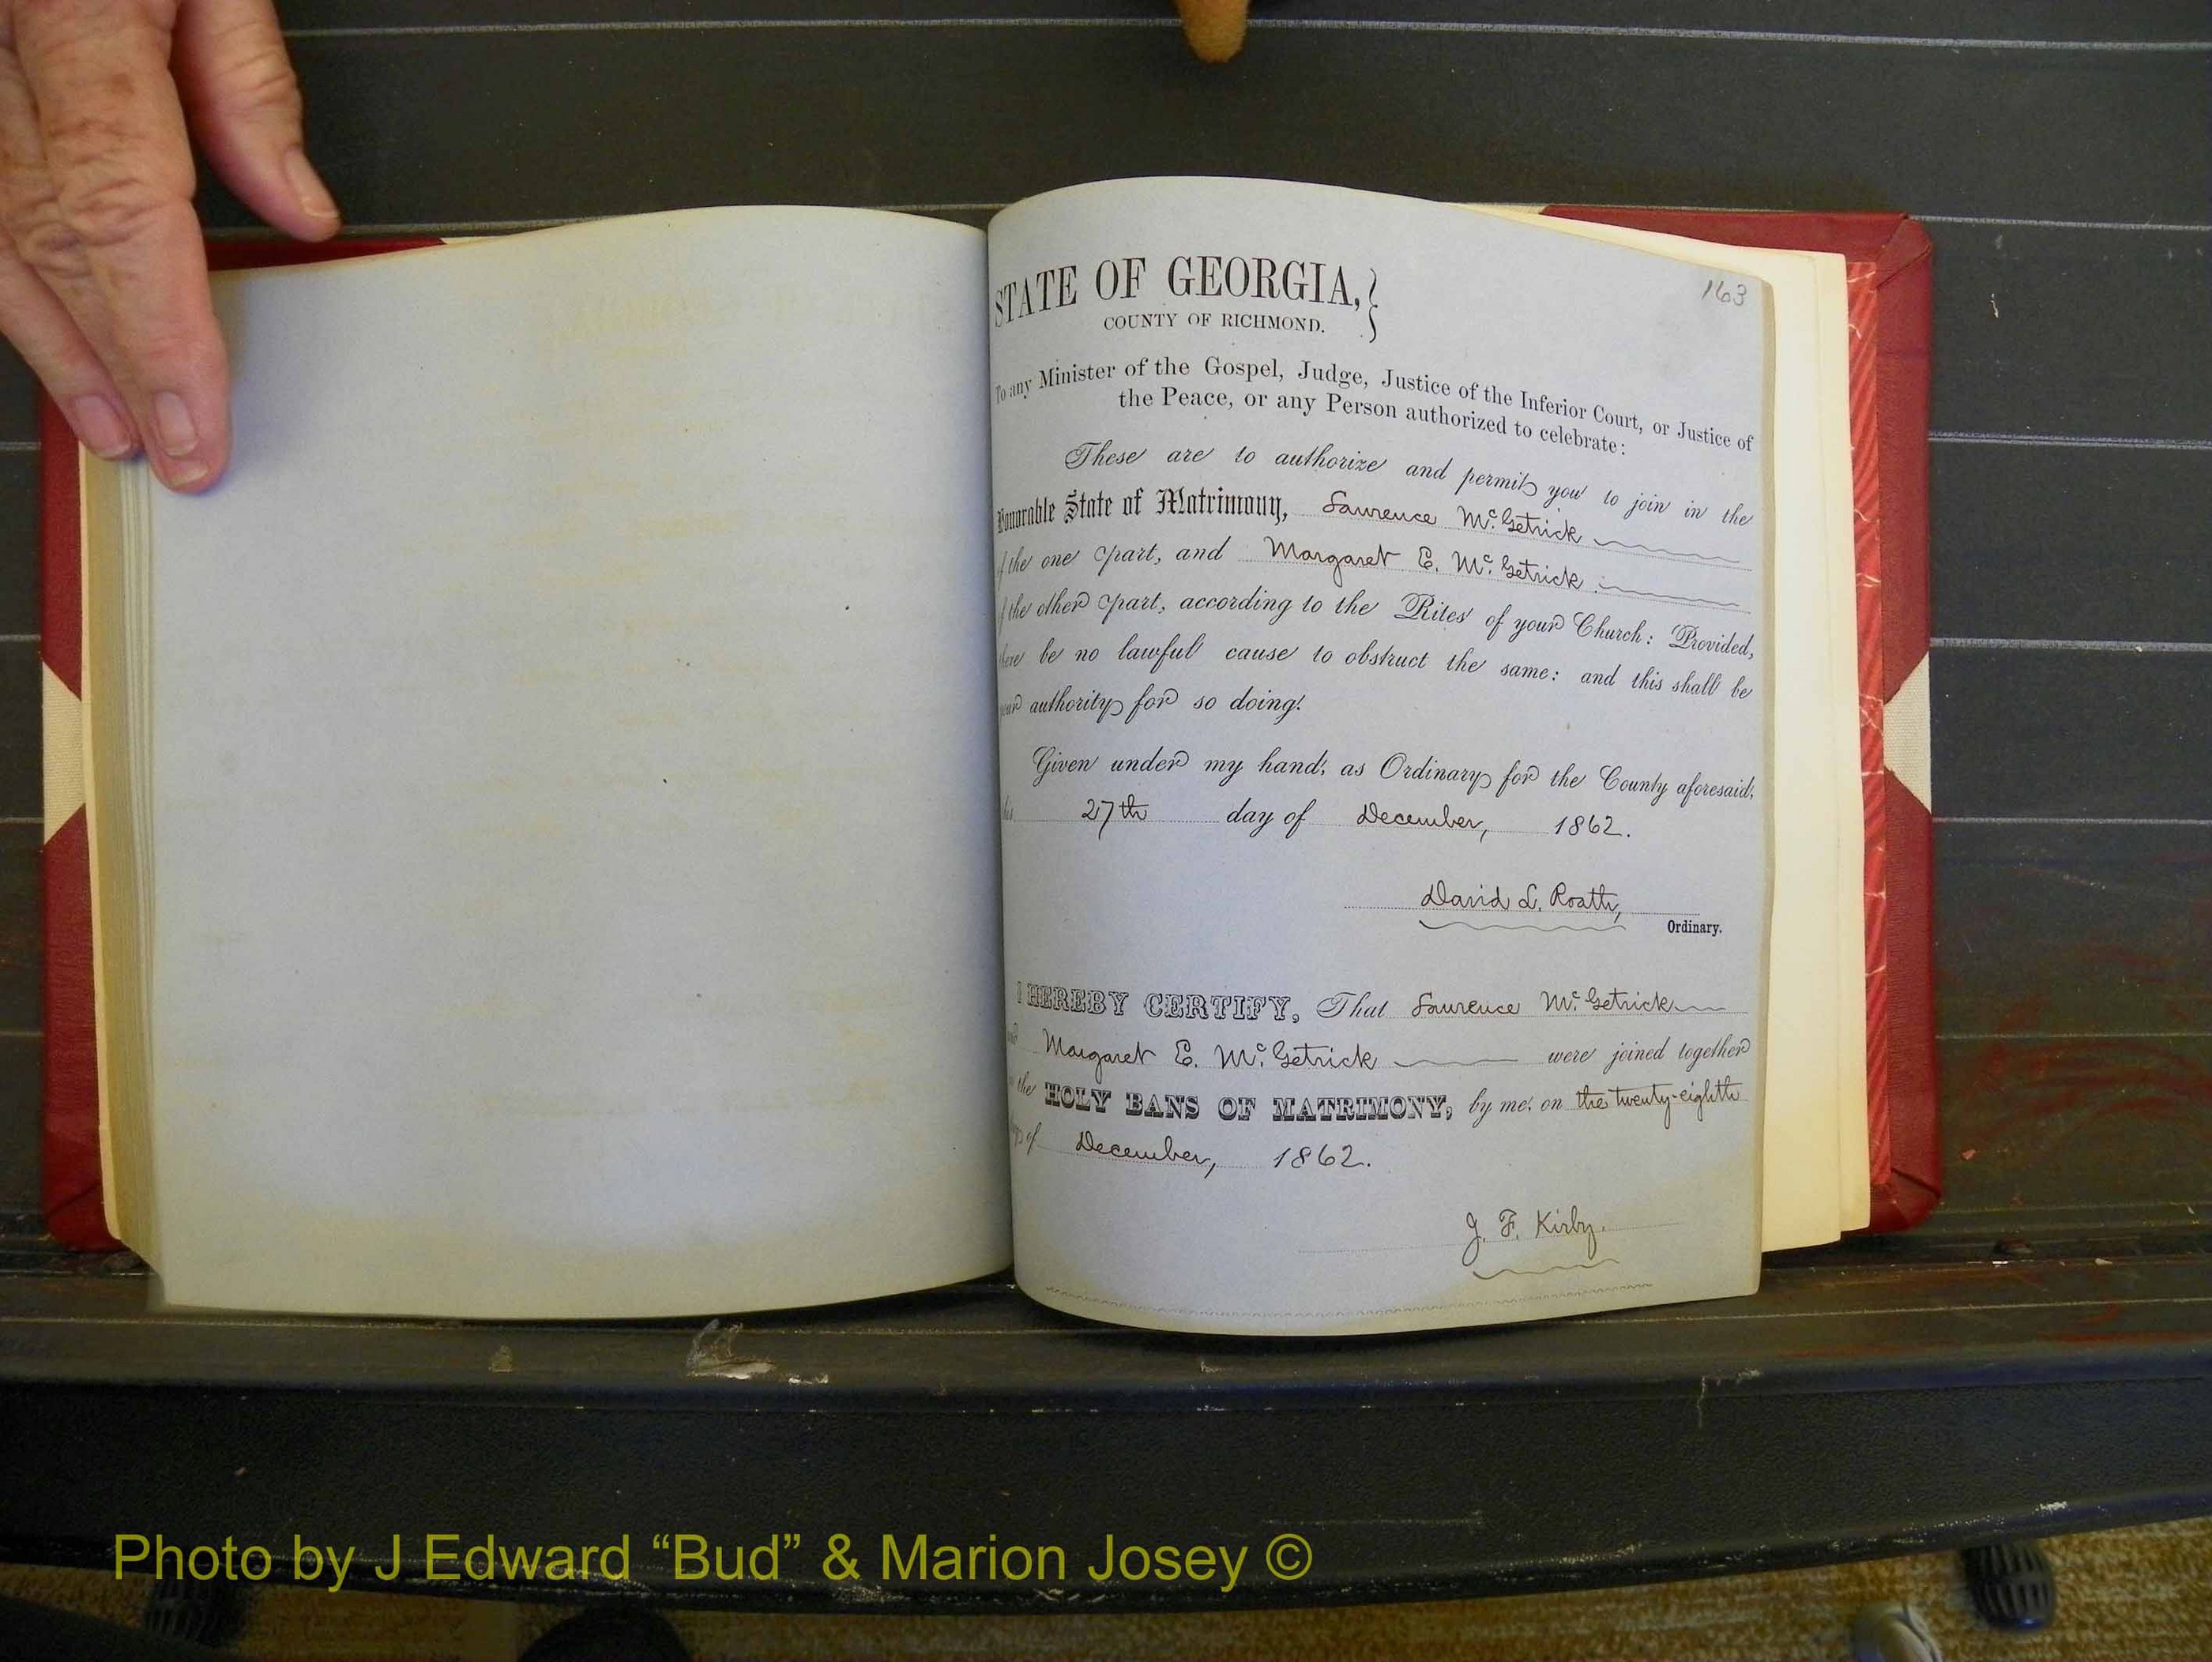 163
STATE OF GEORGIA,
COUNTY OF RICHMOND.
To any Minister of the Gospel, Judge, Justice of the Inferior Court, or Justice of
the Peace, or any Person authorized to celebrate:
These are to authorize and permit you to join in the
Honorable State of Matrimony, Lawrence Mc. Getrick
of the one part, and Margaret E. Mc. Getrick
of the other part, according to the Rites of your Church: Provided,
there be no lawful cause to obstruct the same: and this shall be
your authority for so doing.
Given under my hand, as Ordinary for the County aforesaid,
this 27th day of December, 1862.
David L. Roath,
Ordinary.
I HEREBY CERTIFY, That Lawrence Mc. Getrick
and Margaret E. Mc. Getrick were joined together
in the HOLY BANS OF MATRIMONY, by me, on the twenty-eighth
day of December, 1862.
J. F. Kirby.
Photo by J Edward “Bud” & Marion Josey ©